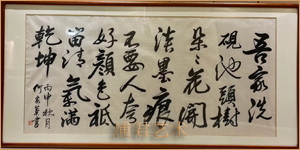 吾家洗
硯池頭樹
朵朵花開
淡墨痕
不要人夸
好顏色祗
留清氣滿
乾坤
丙申秋月